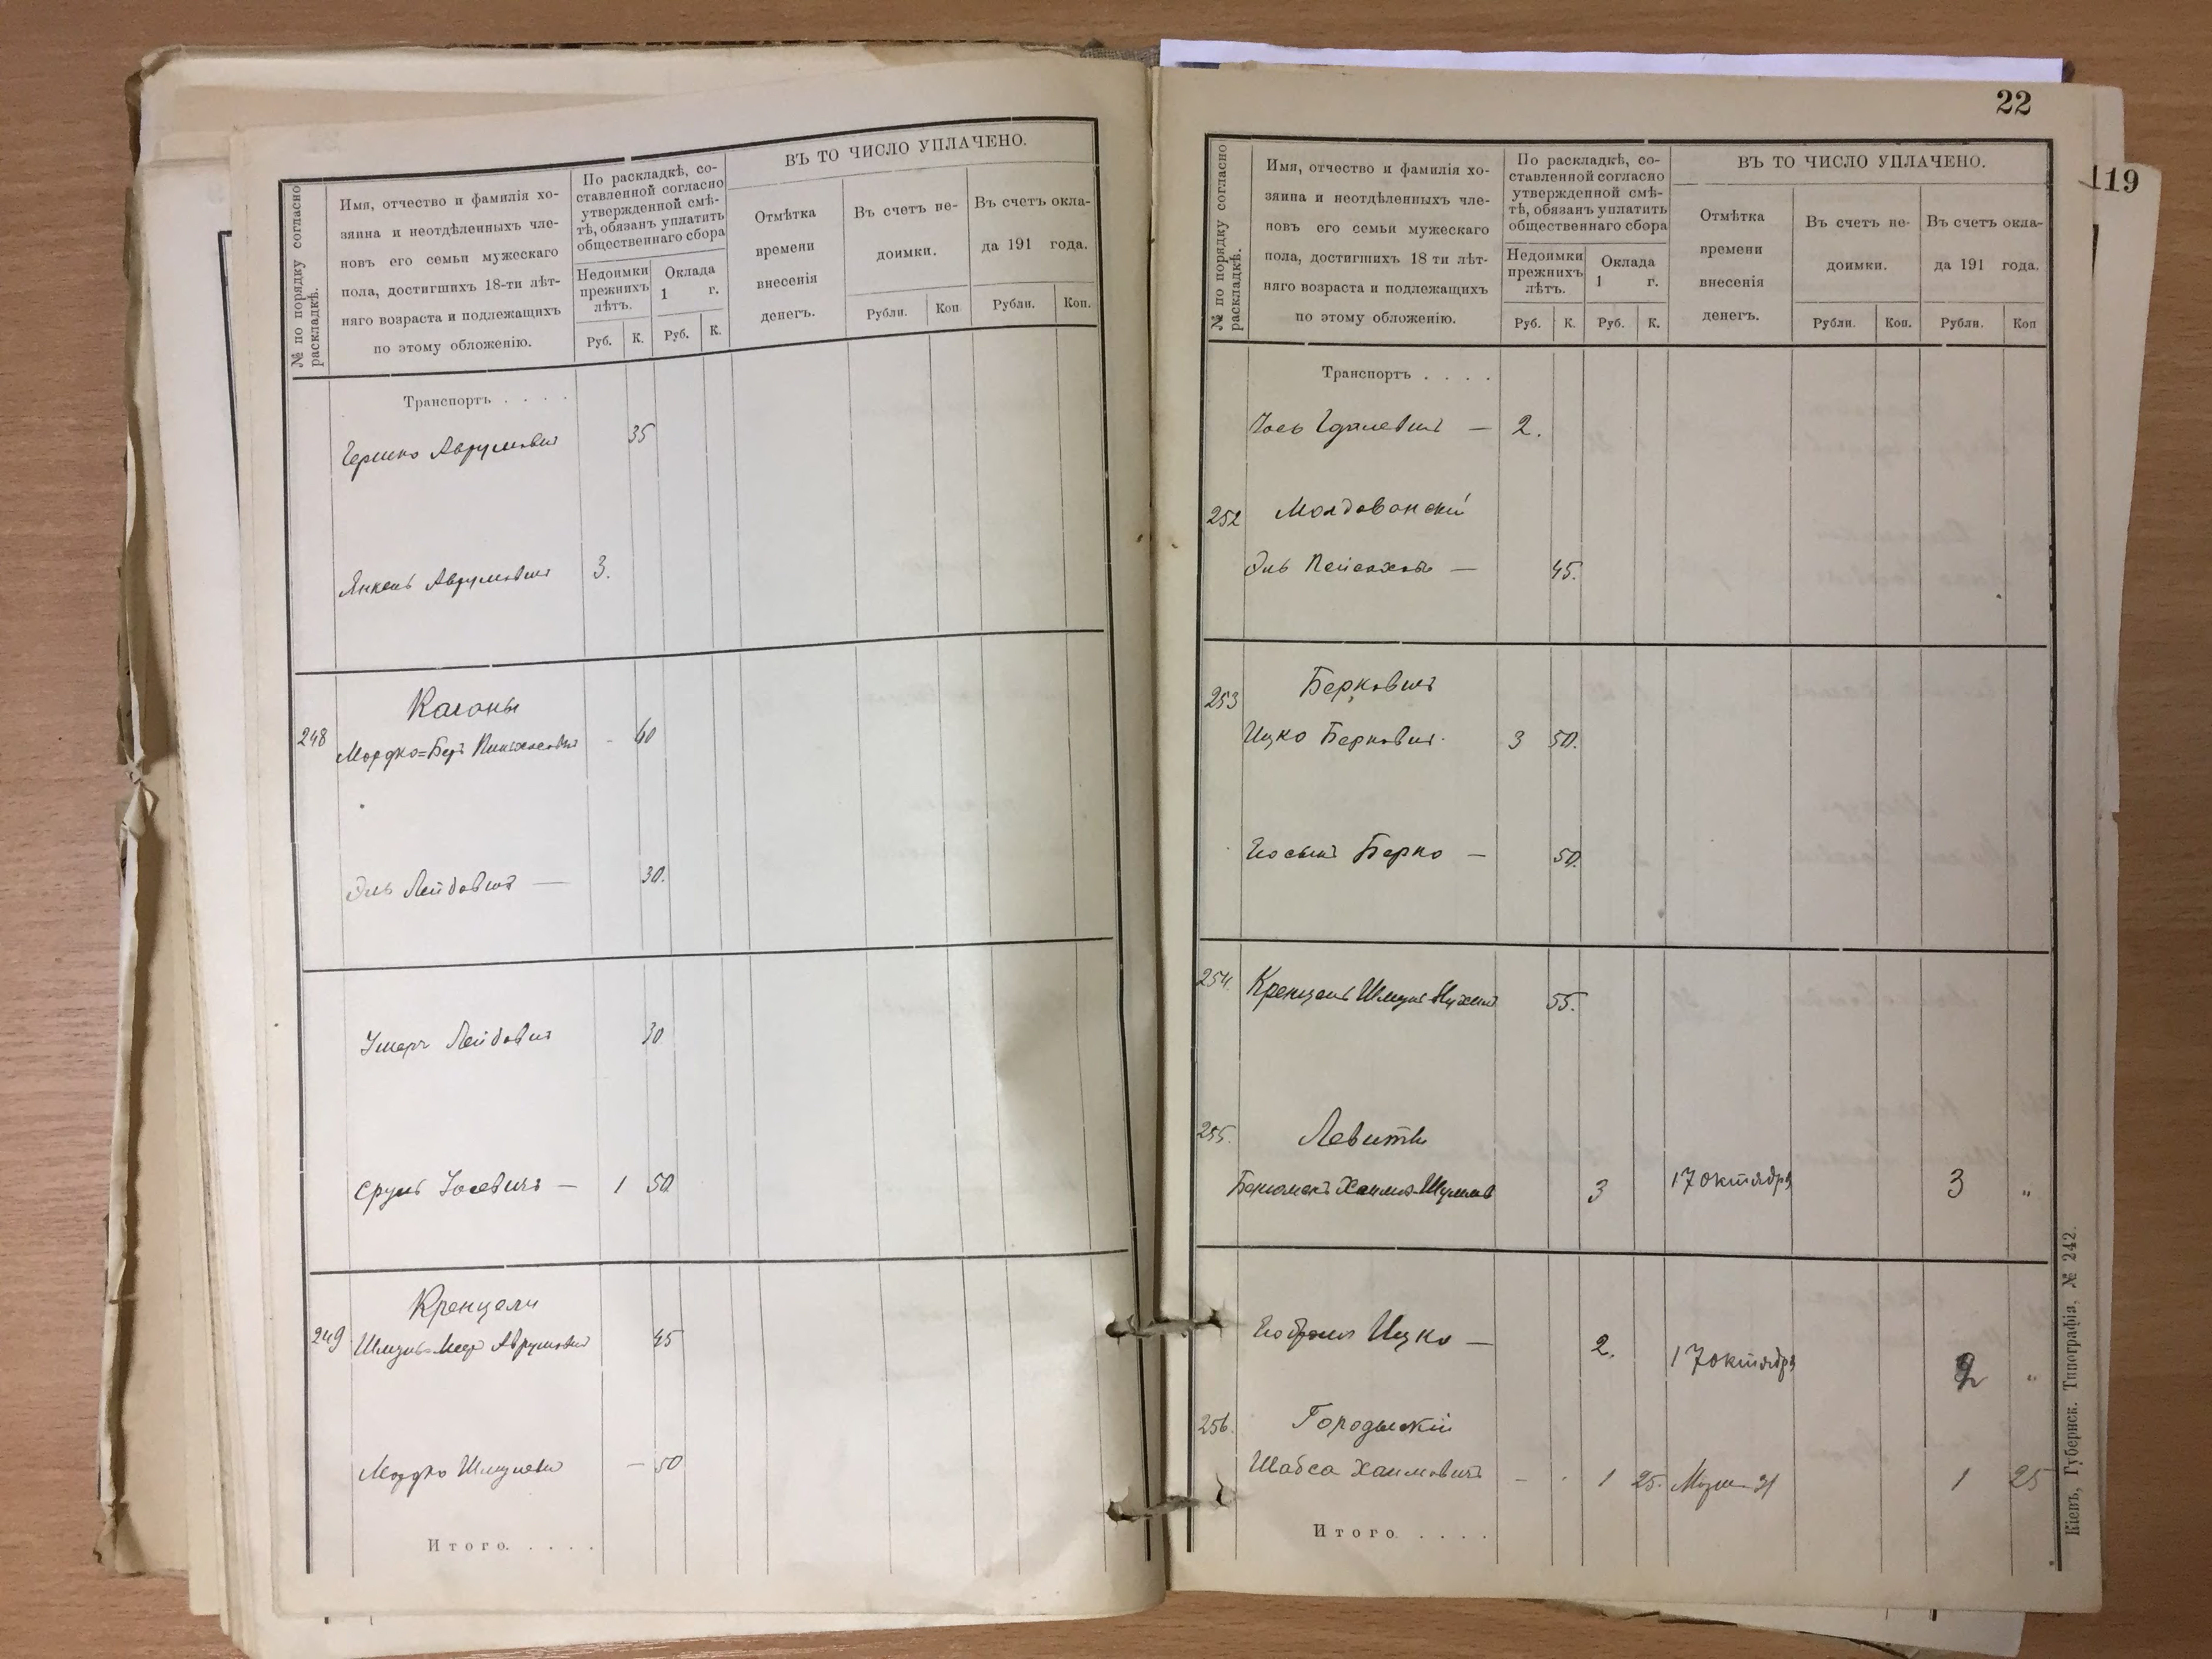 № по порядку согласно раскладкѣ.
Имя, отчество и фамилія хо-
зяина и неотдѣленныхъ чле-
новъ его семьи мужескаго
пола, достигшихъ 18-ти лѣт-
няго возраста и подлежащихъ
по этому обложенію.
По раскладкѣ, со-
ставленной согласно
утвержденной смѣ-
тѣ, обязанъ уплатить
общественнаго сбора
Недоимки
прежнихъ
лѣтъ.
Оклада
1 г.
Руб. К. Руб. К.
ВЪ ТО ЧИСЛО УПЛАЧЕНО.
Отмѣтка
времени
внесенія
денегъ.
Въ счетъ не-
доимки.
Въ счетъ окла-
да 191 года.
Рубли. Коп Рубли. Коп.
Транспортъ . . . .
Гершко Аврумовичъ 35
Янкель Аврумовичъ 3.
Каганы
248 Мордко=Беръ Пинхасовичъ - 40
Эль Лейбовичъ — 30.
Ушеръ Лейбовичъ 30
Сруль Іосевичъ — 1 50
Кренцели
249 Шмуль-Меер Аврумовичъ 45
Мордко Шмулевич — 50
Итого. . . . .
22
119
№ по порядку согласно раскладкѣ.
Имя, отчество и фамилія хо-
зяина и неотдѣленныхъ чле-
новъ его семьи мужескаго
пола, достигшихъ 18 ти лѣт-
няго возраста и подлежащихъ
по этому обложенію.
По раскладкѣ, со-
ставленной согласно
утвержденной смѣ-
тѣ, обязанъ уплатить
общественнаго сбора
Недоимки
прежнихъ
лѣтъ.
Оклада
1 г.
Руб. К. Руб. К.
ВЪ ТО ЧИСЛО УПЛАЧЕНО.
Отмѣтка
времени
внесенія
денегъ.
Въ счетъ не-
доимки.
Въ счетъ окла-
да 191 года.
Рубли. Коп. Рубли. Коп
Транспортъ . . . .
— 2.
252 Молдованскій
Эль — 45.
253 Берковичъ
Ицко Берковичъ. 3 50.
Его сынъ Берко — 50.
254. Кренцель Шмуль 55.
255. Левиты
3 17 октября 3 "
Ицко — 2. 17 октября 2 "
256. Городыскій
Шабса Хаимовичъ - 1 25. 31 1 25
Итого. . . . .
Кіевъ, Губернск. Типографія, № 242.